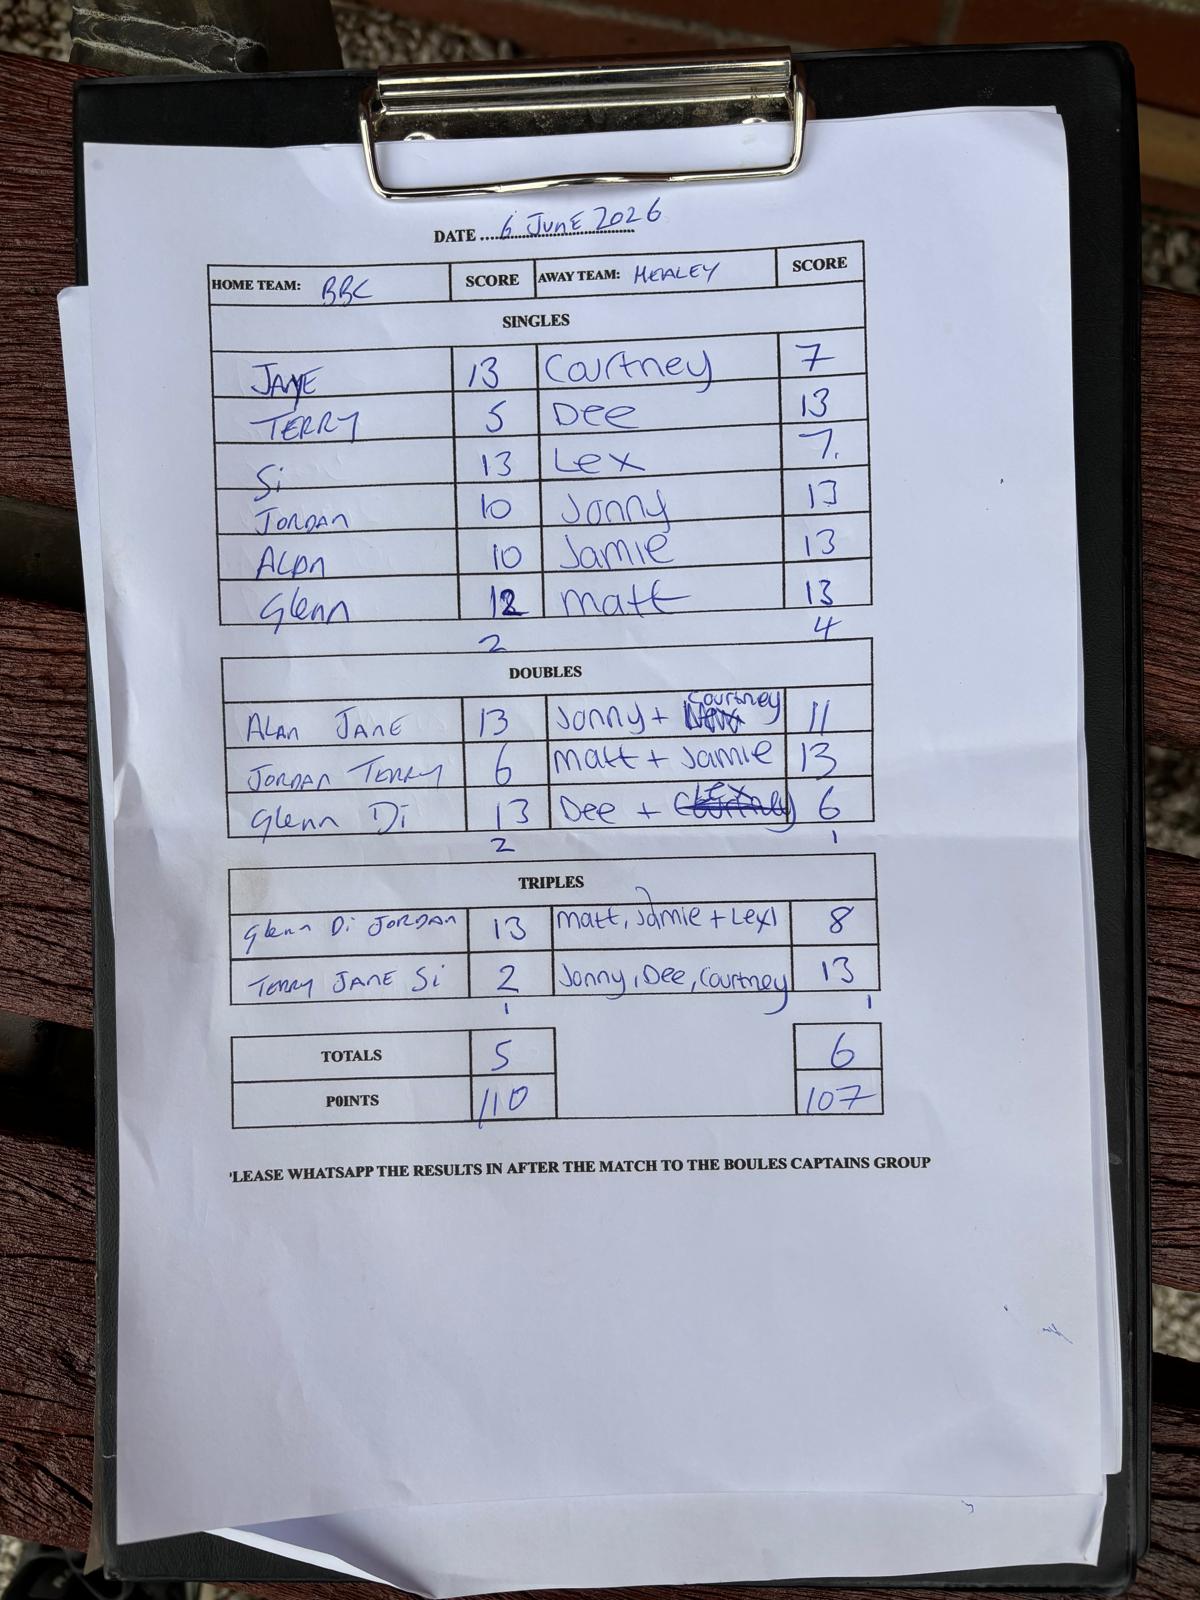 DATE .... 6 JUNE 2026
HOME TEAM: BBC SCORE AWAY TEAM: HEALEY SCORE
SINGLES
JANE 13 Courtney 7
TERRY 5 Dee 13
Si 13 Lex 7.
JORDAN 10 Jonny 13
ALAN 10 Jamie 13
Glenn 12 Matt 13
2 4
DOUBLES
ALAN JANE 13 Jonny + Courtney 11
JORDAN TERRY 6 Matt + Jamie 13
Glenn Di 13 Dee + Lex 6
2 1
TRIPLES
Glenn Di JORDAN 13 Matt, Jamie + Lexi 8
TERRY JANE Si 2 Jonny, Dee, Courtney 13
1 1
TOTALS 5 6
POINTS 110 107
LEASE WHATSAPP THE RESULTS IN AFTER THE MATCH TO THE BOULES CAPTAINS GROUP